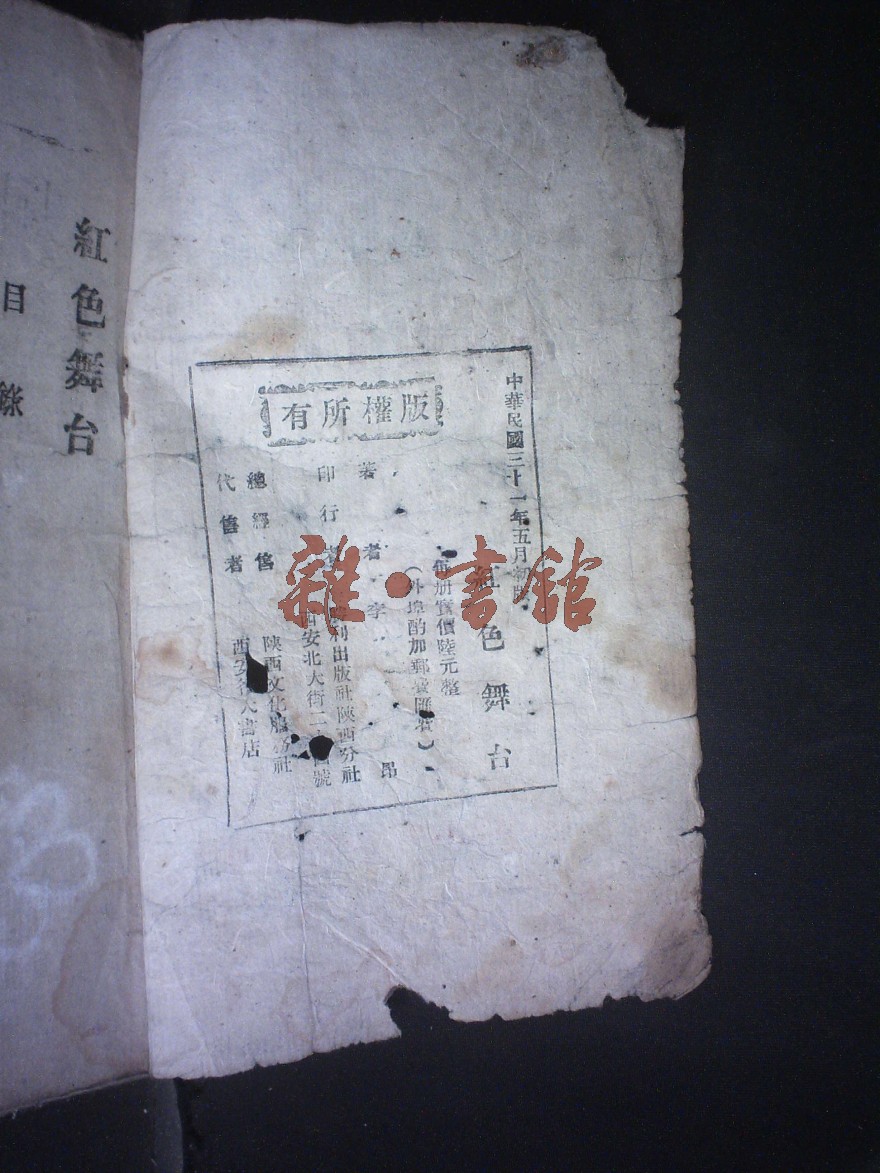 中華民國三十一年五月初版
紅色舞台
每册實價陸元整
（外埠酌加郵費匯費）
版權所有
著者 李昂
印行者 勝利出版社陝西分社
西安北大街二十號
總經售 陝西文化服務社
代售者 西安各大書店
紅色舞台
目錄
雜·書館